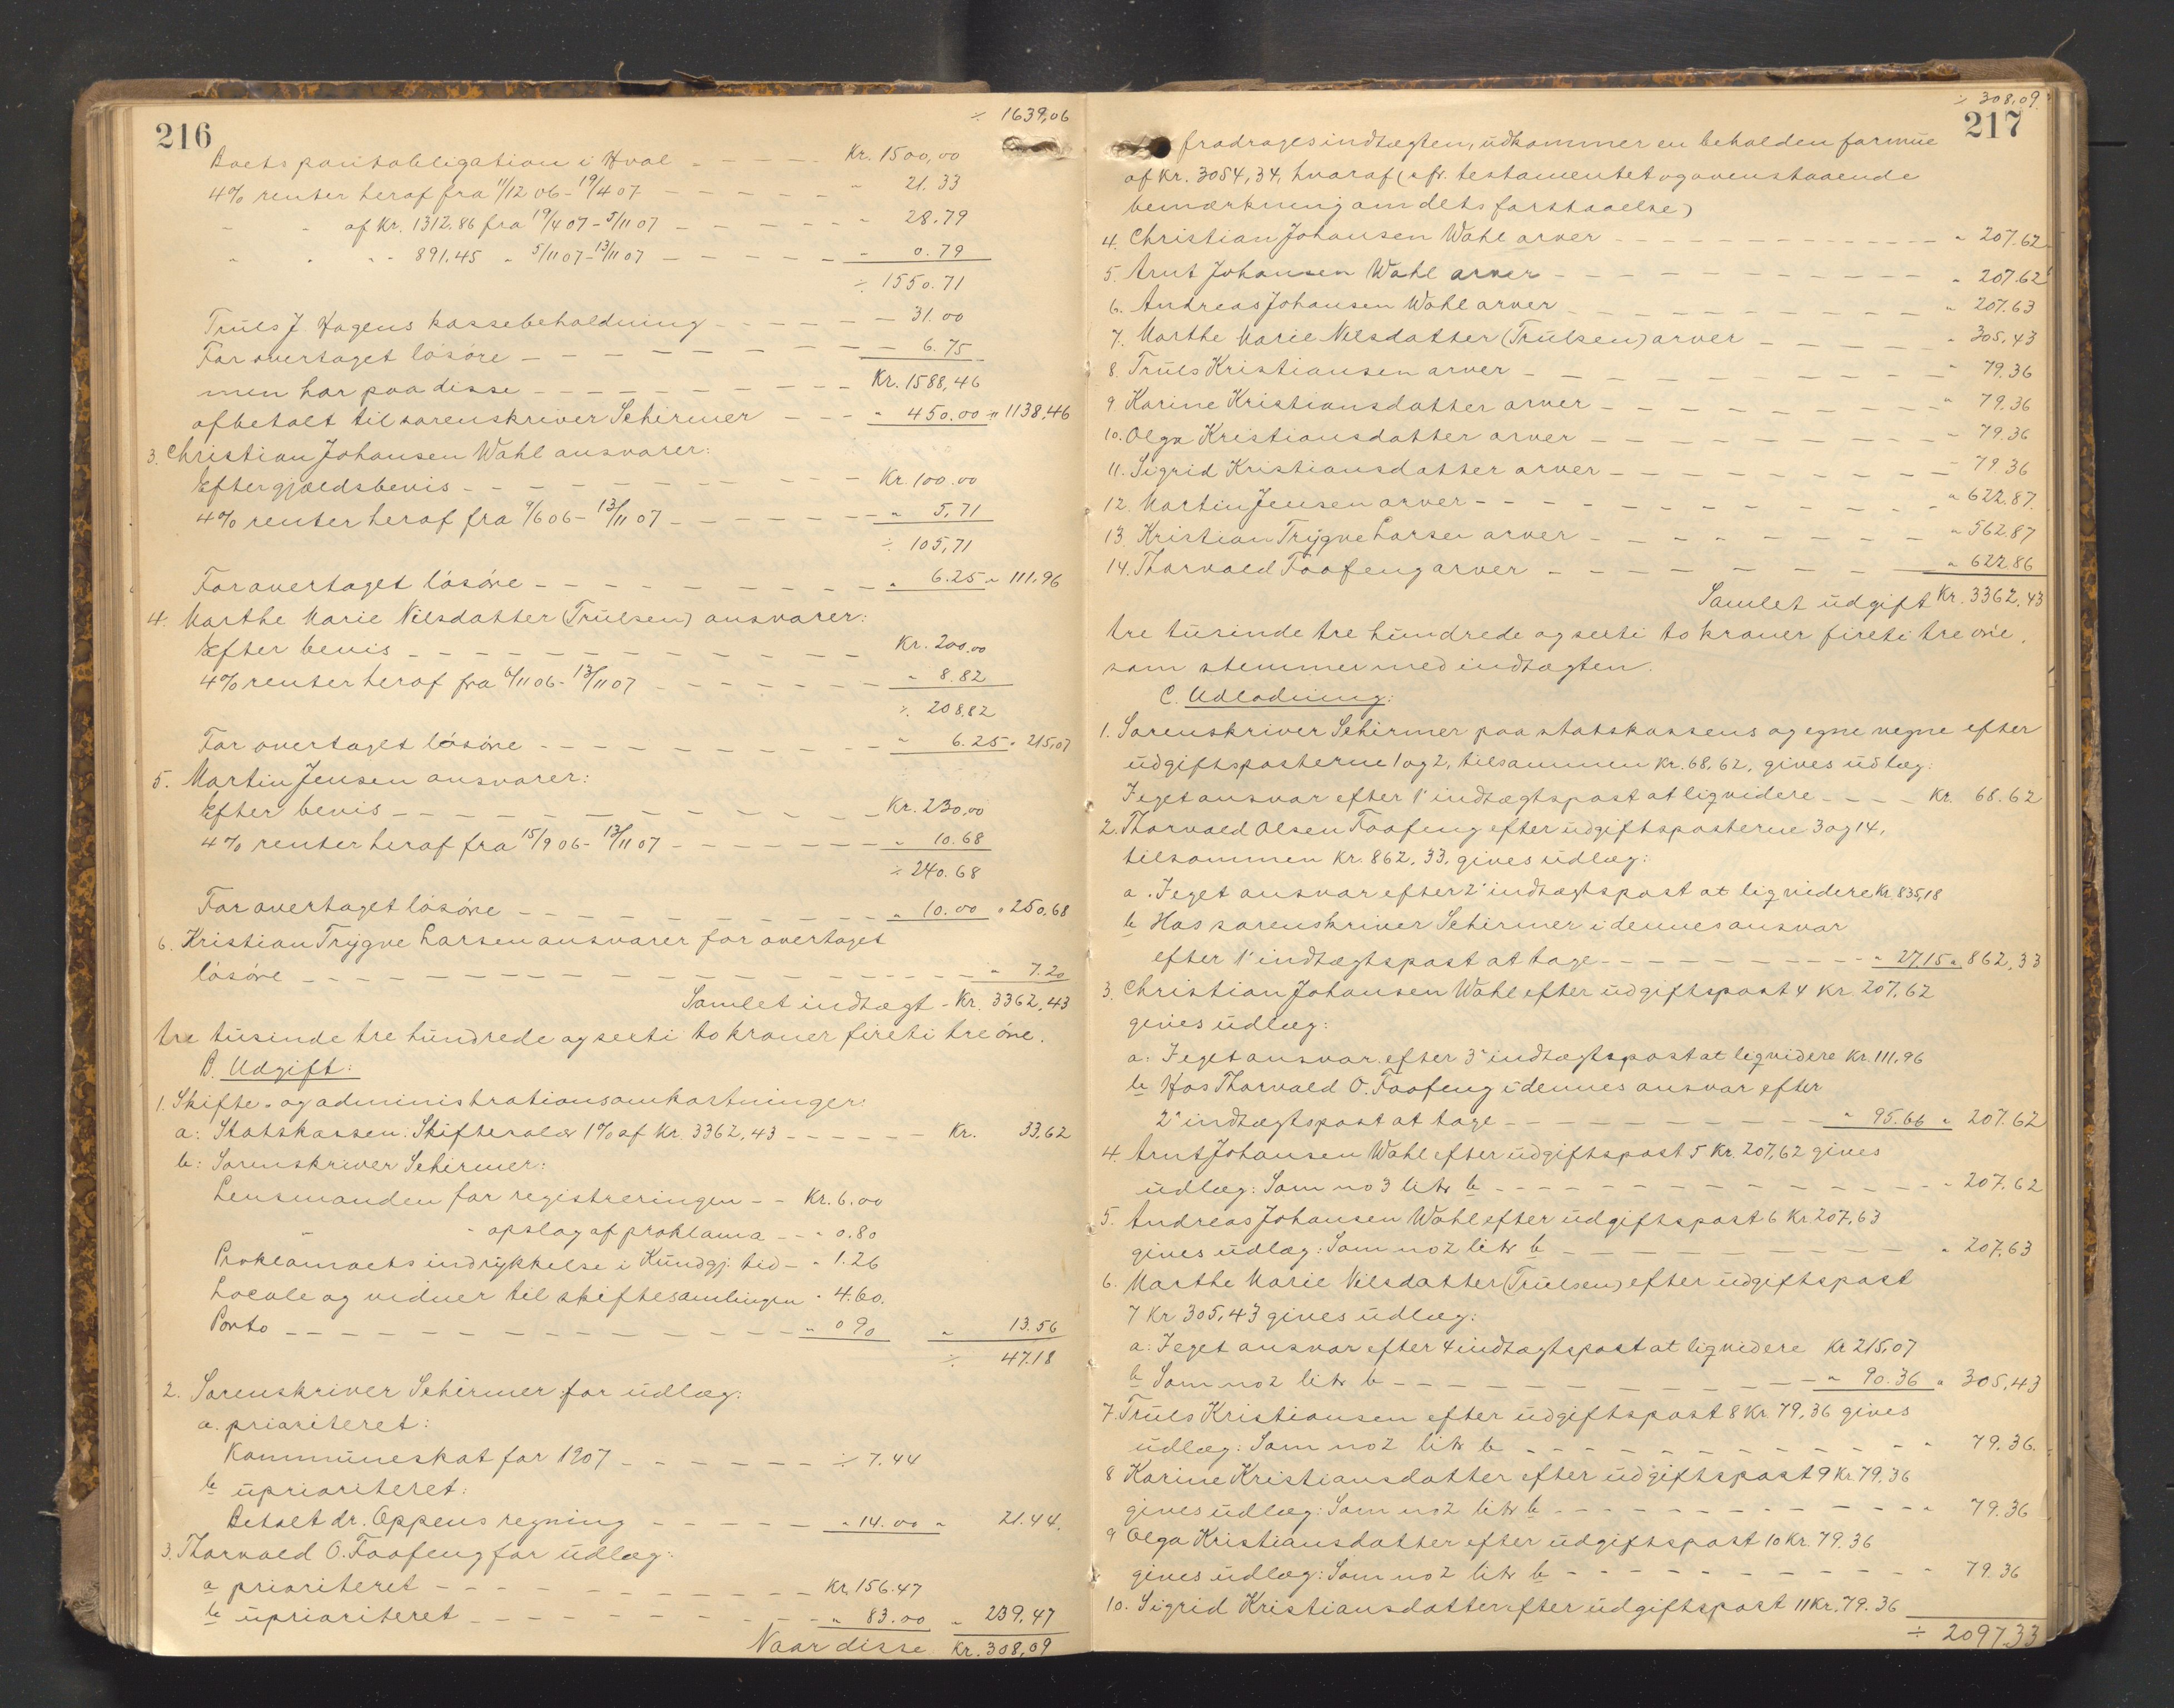 ÷ 1639,06
216
Boets pantobligation i Hval - - - - Kr. 1500,00
4% renter heraf fra 11/12 06 - 19/4 07 - - - - - " 21.33
" " af Kr. 1312.86 fra 19/4 07 - 5/11 07 - - - - - " 28.79
" " " - 891.45 " 5/11 07 - 13/11 07 - - - - - " 0.79
÷ 1550.71
Truls J. Hagens kassebeholdning - - - - - 31.00
For overtaget løsøre - - - - - - - - 6.75
men har paa disse - - - - - - - Kr. 1588,46
afbetalt til sorenskriver Schirmer - - - " 450.00 " 1138.46
3. Christian Johansen Wahl ansvarer:
Efter gjældsbevis - - - - - - - - Kr. 100.00
4% renter heraf fra 9/6 06 - 13/11 07 - - - - - " 5,71
÷ 105,71
For overtaget løsøre - - - - - - - - " 6.25 " 111.96
4. Marthe Marie Nilsdatter (Trulsen) ansvarer:
Efter bevis - - - - - - - - - - Kr. 200.00
4% renter heraf fra 6/11 06 - 13/11 07 - - - - - " 8.82
÷ 208,82
For overtaget løsøre - - - - - - - - " 6.25 " 215,07
5. Martin Jensen ansvarer:
Efter bevis - - - - - - - - - - Kr. 230,00
4% renter heraf fra 15/9 06 - 13/11 07 - - - - - " 10.68
÷ 240.68
For overtaget løsøre - - - - - - - - " 10.00 " 250.68
6. Kristian Trygve Larsen ansvarer for overtaget
løsøre - - - - - - - - - - - - - - " 7.20
Samlet indtægt - Kr. 3362,43
tre tusinde tre hundrede og seksti to kroner fireti tre øre.
B. Udgift:
1. Skifte- og administrationsomkostninger:
a: Statskassen: Skiftesalær 1% af Kr. 3362,43 - - - - - Kr. 33.62
b: Sorenskriver Schirmer:
Lensmanden for registreringen - - Kr. 6.00
" " opslag af proklama - - " 0.80
Proklamaets indrykkelse i Kundgj. tid - " 1.26
Locale og vidner til skiftesamlingen " 4.60.
Porto - - - - - - - - - - - " 0 90 " 13.56
÷ 47.18
2. Sorenskriver Schirmer for udlæg:
a. prioriteret:
Kommuneskat for 1907 - - - - - - ÷ 7.44
b uprioriteret:
Betalt dr. Oppens regning - - - - - " 14.00 " 21.44.
3. Thorvald O. Foofeng for udlæg:
a prioriteret - - - - - - - - - - Kr. 156.47
b uprioriteret - - - - - - - - - " 83.00 " 239.47
Naar disse Kr. 308,09
÷ 308,09.
217
fradrages indtægten, udkommer en beholden formue
af Kr. 3054,34, hvoraf (efr. testamentet og ovenstaaende
bemærkning om dets forstaaelse)
4. Christian Johansen Wahl arver - - - - - - - - - - " 207.62
5. Arnt Johansen Wahl arver - - - - - - - - - - " 207.62
6. Andreas Johansen Wahl arver - - - - - - - - - " 207.63
7. Marthe Marie Nilsdatter (Trulsen) arver - - - - - " 305,43
8. Truls Kristiansen arver - - - - - - - - - - " 79.36
9. Karine Kristiansdatter arver - - - - - - - - - " 79.36
10. Olga Kristiansdatter arver - - - - - - - - - - 79.36
11. Sigrid Kristiansdatter arver - - - - - - - - - 79.36
12. Martin Jensen arver - - - - - - - - - - - " 622.87.
13. Kristian Trygve Larsen arver - - - - - - - - - " 562.87
14. Thorvald Foofeng arver - - - - - - - - - " 622.86
Samlet udgift Kr. 3362.43
tre tusinde tre hundrede og seksti to kroner fireti tre øre,
som stemmer med indtægten.
C. Udlodning:
1. Sorenskriver Schirmer paa statskassens og egne vegne efter
udgiftsposterne 1 og 2, tilsammen Kr. 68,62, gives udlæg:
I eget ansvar efter 1' indtægtspost at liqvidere - - - - Kr. 68.62
2. Thorvald Olsen Foofeng efter udgiftsposterne 3 og 14,
tilsammen Kr. 862,33, gives udlæg:
a. I eget ansvar efter 2' indtægtspost at liqvidere Kr. 835,18
b Hos sorenskriver Schirmer i dennes ansvar
efter 1' indtægtspost at tage - - - - - - - - - " 27,15 " 862,33
3. Christian Johansen Wahl efter udgiftspost 4 Kr. 207,62
gives udlæg:
a: I eget ansvar efter 3' indtægtspost at liqvidere Kr. 111,96
b Hos Thorvald O. Foofeng i dennes ansvar efter
2' indtægtspost at tage - - - - - - - - - - " 95.66 " 207.62
4. Arnt Johansen Wahl efter udgiftspost 5 Kr. 207,62 gives
udlæg: Som no 3 litr b - - - - - - - - - - - - - " 207.62
5. Andreas Johansen Wahl efter udgiftspost 6 Kr. 207,63
gives udlæg: Som no 2 litr b - - - - - - - - - - " 207,63
6. Marthe Marie Nilsdatter (Trulsen) efter udgiftspost
7 Kr 305,43 gives udlæg:
a: I eget ansvar efter 4 indtægtspost at liqvidere Kr 215,07
b Som no 2 litr b - - - - - - - - - - - - " 90.36 " 305,43
7. Truls Kristiansen efter udgiftspost 8 Kr 79,36 gives
udlæg: Som no 2 litr b - - - - - - - - - - - - " 79.36.
8 Karine Kristiansdatter efter udgiftspost 9 Kr. 79,36
gives udlæg: Som no 2 litr b - - - - - - - - - - " 79.36
9 Olga Kristiansdatter efter udgiftspost 10 Kr. 79.36
gives udlæg: Som no 2 litr b - - - - - - - - - - " 79.36
10. Sigrid Kristiansdatter efter udgiftspost 11 Kr. 79.36
÷ 2097.33